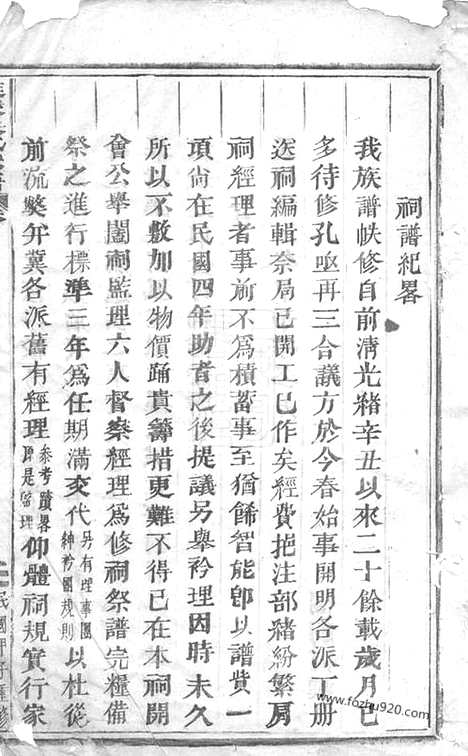 祠譜紀畧
我族譜帙修自前清光緒辛丑以來二十餘載歲月已
多待修孔亟再三合議方於今春始事開明各派丁冊
送祠編輯奈局已開工已作矣經費挹注部豬紛繁局
祠經理者事前不為積蓄事至猶飾智能卽以譜費一
項尙在民國四年助者之後提議另舉衿理因時未久
所以不敷加以物價踊貴籌措更難不得已在本祠開
會公舉闔祠監理六人督察經理為修祠祭譜完糧備
祭之進行標準三年為任期滿交代另有理事團紳衿團規則以杜從
前流獘弁冀各派舊有經理參考蹟畧卽是監理仰體祠規實行家
民國甲子
www.fozhu920.com